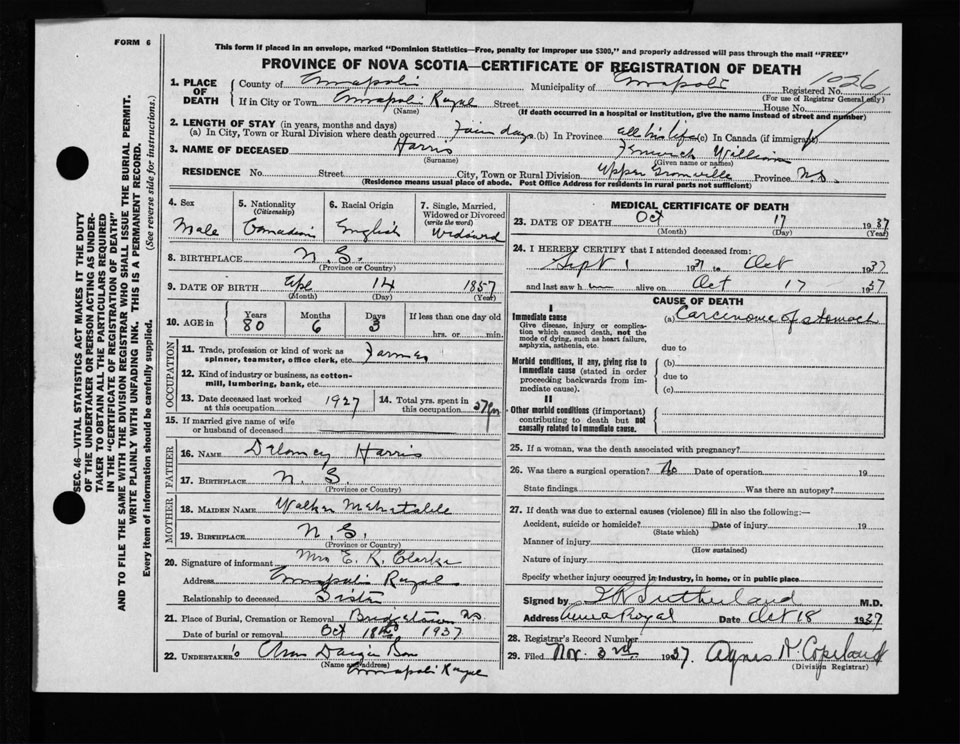 FORM 6
This form if placed in an envelope, marked "Dominion Statistics—Free, penalty for improper use $300," and properly addressed will pass through the mail "FREE"
PROVINCE OF NOVA SCOTIA—CERTIFICATE OF REGISTRATION OF DEATH
1. PLACE OF DEATH
County of Annapolis Municipality of Annapolis Registered No. 1026
(For use of Registrar General only)
If in City or Town Annapolis Royal Street House No.
(Name) (If death occurred in a hospital or institution, give the name instead of street and number)
2. LENGTH OF STAY (in years, months and days)
(a) In City, Town or Rural Division where death occurred days (b) In Province all his life (c) In Canada (if immigrant)
3. NAME OF DECEASED Harris William
(Surname) (Given name or names)
RESIDENCE No. Street City, Town or Rural Division Upper Granville Province N.S.
(Residence means usual place of abode. Post Office Address for residents in rural parts not sufficient)
4. Sex Male
5. Nationality (Citizenship) Canadian
6. Racial Origin English
7. Single, Married, Widowed or Divorced (write the word) Widowed
8. BIRTHPLACE N. S.
(Province or Country)
9. DATE OF BIRTH Apl 14 1857
(Month) (Day) (Year)
10. AGE in Years 80 Months 6 Days 3 If less than one day old
hrs. or min.
OCCUPATION
11. Trade, profession or kind of work as spinner, teamster, office clerk, etc. Farmer
12. Kind of industry or business, as cotton-mill, lumbering, bank, etc.
13. Date deceased last worked at this occupation 1927
14. Total yrs. spent in this occupation
15. If married give name of wife or husband of deceased
FATHER
16. NAME Harris
17. BIRTHPLACE N. S.
(Province or Country)
MOTHER
18. MAIDEN NAME Walker
19. BIRTHPLACE N. S.
(Province or Country)
20. Signature of informant Mrs E. K. Clarke
Address Annapolis Royal
Relationship to deceased Sister
21. Place of Burial, Cremation or Removal Bridgetown N.S.
Date of burial or removal Oct 18th 1937
22. UNDERTAKER'S
(Name and address)
Annapolis Royal
MEDICAL CERTIFICATE OF DEATH
23. DATE OF DEATH Oct 17 1937
(Month) (Day) (Year)
24. I HEREBY CERTIFY that I attended deceased from:
Sept 1 1937 to Oct 1937
and last saw him alive on Oct 17 1937
CAUSE OF DEATH
I
Immediate cause
Give disease, injury or complication which caused death, not the mode of dying, such as heart failure, asphyxia, asthenia, etc.
(a) Carcinoma of stomach
due to
Morbid conditions, if any, giving rise to immediate cause (stated in order proceeding backwards from immediate cause).
(b)
due to
(c)
II
Other morbid conditions (if important) contributing to death but not causally related to immediate cause.
25. If a woman, was the death associated with pregnancy?
26. Was there a surgical operation? No Date of operation 19
State findings Was there an autopsy?
27. If death was due to external causes (violence) fill in also the following:—
Accident, suicide or homicide? Date of injury 19
(State which)
Manner of injury
(How sustained)
Nature of injury
Specify whether injury occurred in industry, in home, or in public place
Signed by Sutherland M.D.
Address Anna Royal Date Oct 18 1937
28. Registrar's Record Number
29. Filed Nov. 3rd 1937. Agnes N. Copeland
(Division Registrar)
SEC. 46—VITAL STATISTICS ACT MAKES IT THE DUTY
OF THE UNDERTAKER OR PERSON ACTING AS UNDER-
TAKER TO OBTAIN ALL THE PARTICULARS REQUIRED
IN THE "CERTIFICATE OF REGISTRATION OF DEATH"
AND TO FILE THE SAME WITH THE DIVISION REGISTRAR WHO SHALL ISSUE THE BURIAL PERMIT.
WRITE PLAINLY WITH UNFADING INK. THIS IS A PERMANENT RECORD.
Every item of information should be carefully supplied. (See reverse side for instructions.)